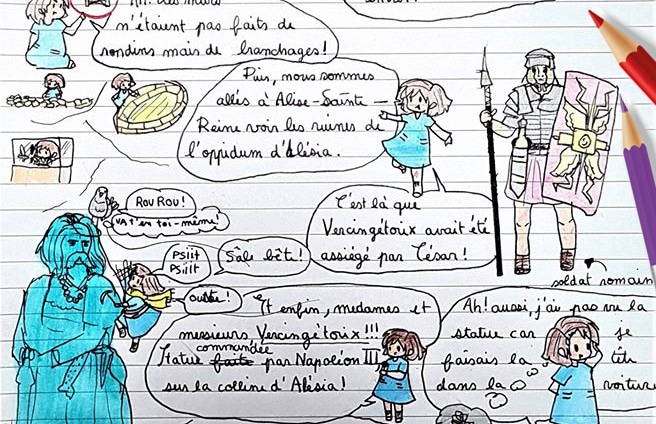 n'étaient pas faits de
rondins mais de branchages!
Puis, nous sommes
allés à Alise-Sainte-
Reine voir les ruines de
l'oppidum d'Alésia.
C'est là que
Vercingétorix avait été
assiégé par César!
soldat romain
ROU ROU!
VA t'en toi-même!
PSIIT
PSIIIT
Sâle bête!
ouste!
Et enfin, mesdames et
messieurs Vercingétorix!!!
commandée
Statue faite par Napoléon III
sur la colline d'Alésia!
Ah! aussi, j'ai pas vu la
statue car je
faisais la tête
dans la voiture